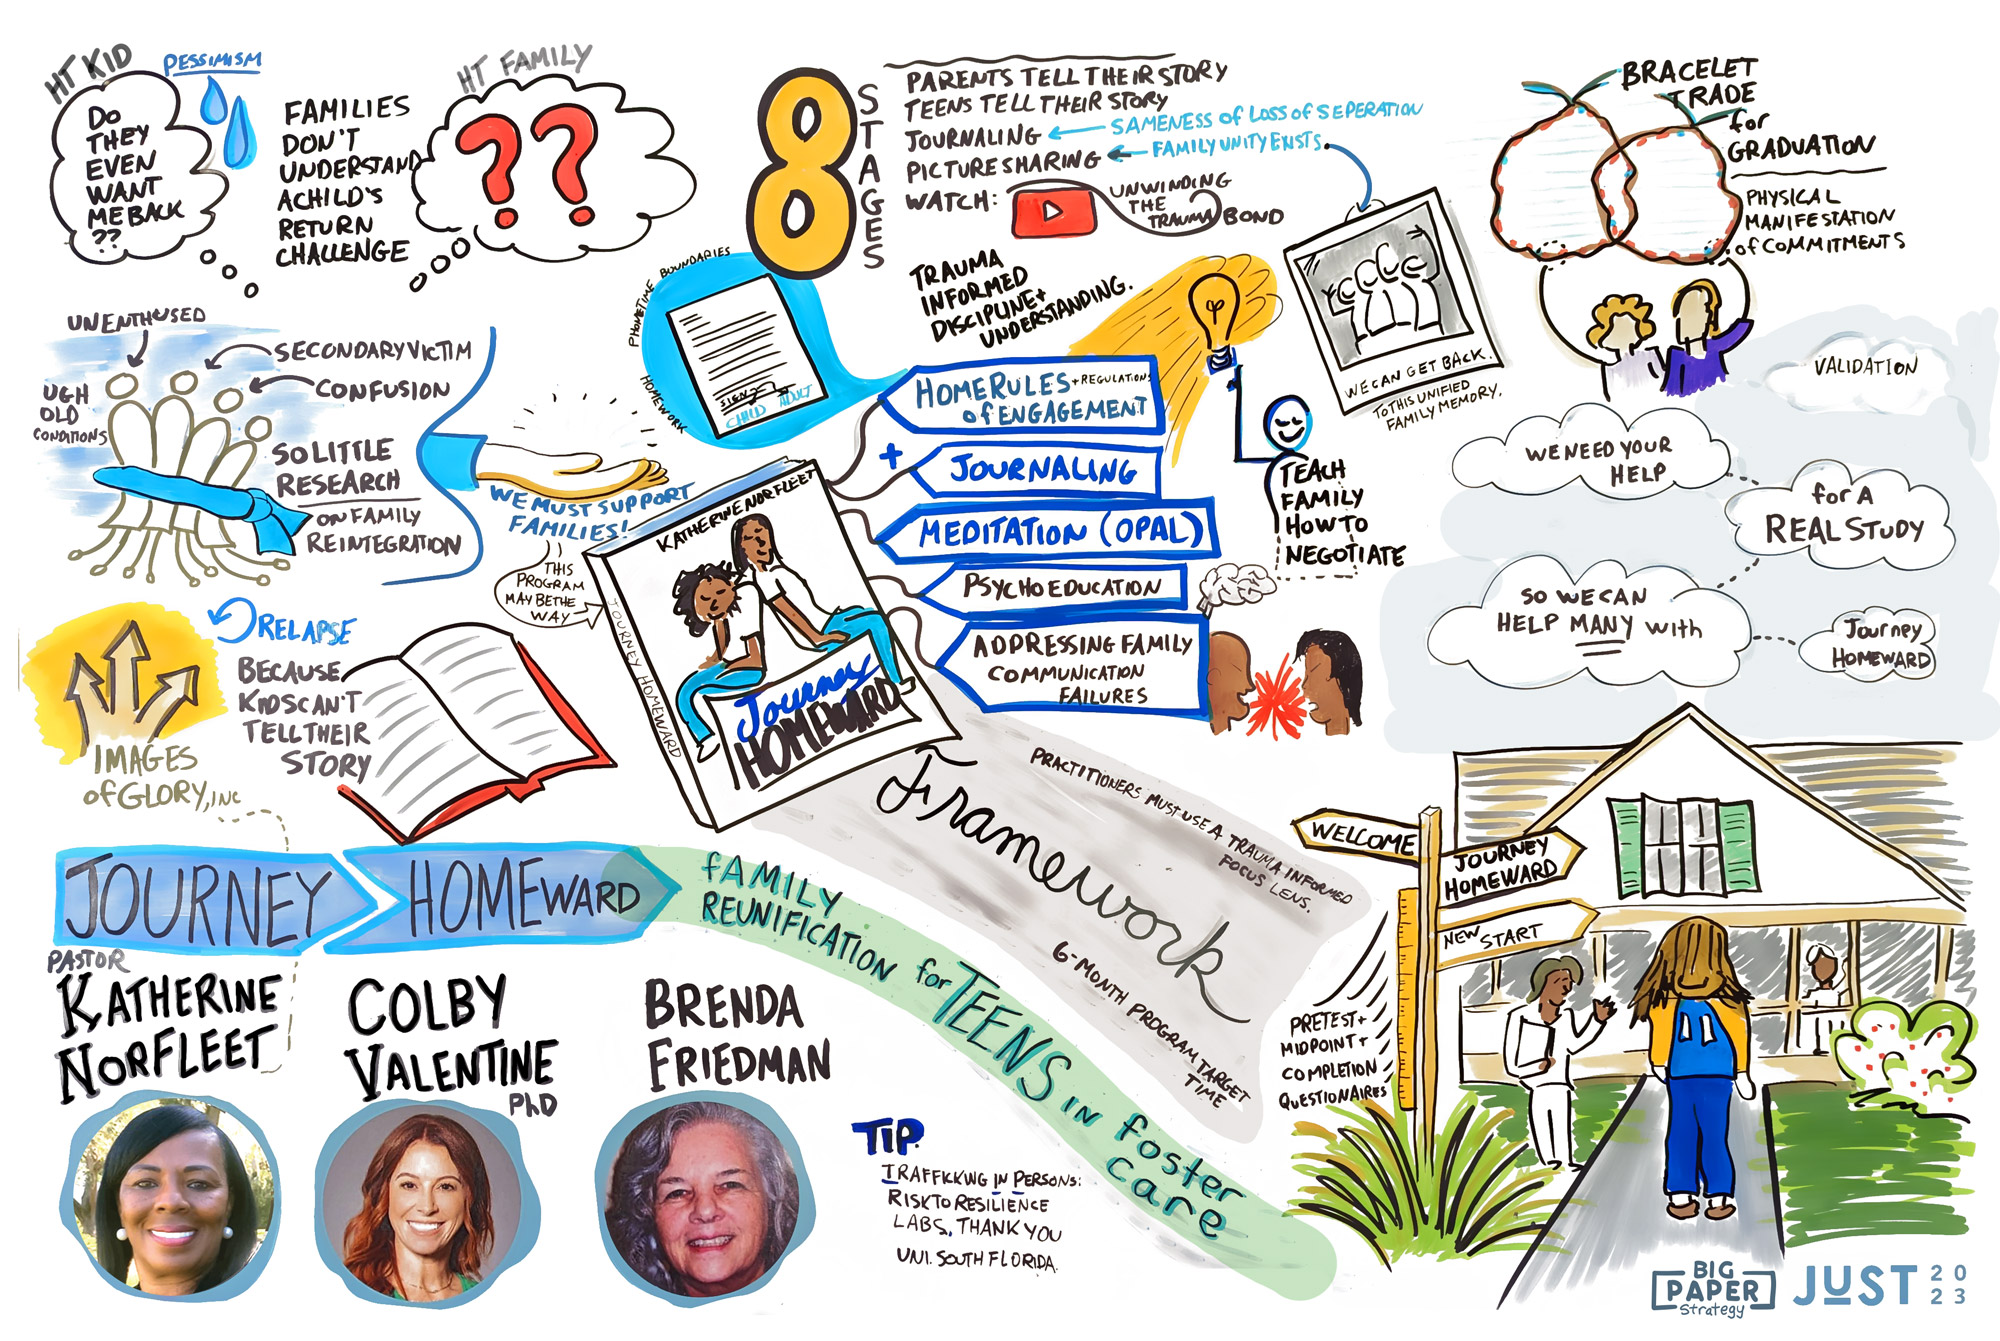 HT KID
PESSIMISM
DO
THEY
EVEN
WANT
ME BACK
??
FAMILIES
DON'T
UNDERSTAND
A CHILD'S
RETURN
CHALLENGE
HT FAMILY
??
8
STAGES
PARENTS TELL THEIR STORY
TEENS TELL THEIR STORY
JOURNALING ← SAMENESS OF LOSS OF SEPERATION
PICTURE SHARING ← FAMILY UNITY EXISTS
WATCH:
UNWINDING
THE
TRAUMA BOND
BRACELET
TRADE
for
GRADUATION
PHYSICAL
MANIFESTATION
of COMMITMENTS
UNENTHUSED
SECONDARY VICTIM
CONFUSION
UGH
OLD
CONDITIONS
SO LITTLE
RESEARCH
ON FAMILY
REINTEGRATION
WE MUST SUPPORT
FAMILIES!
THIS
PROGRAM
MAY BE THE
WAY
PHONETIME BOUNDARIES
HOMEWORK
SIGN
CHILD ADULT
TRAUMA
INFORMED
DISCIPLINE +
UNDERSTANDING.
HOME RULES + REGULATIONS
of ENGAGEMENT
+
JOURNALING
MEDITATION (OPAL)
PSYCHOEDUCATION
ADDRESSING FAMILY
COMMUNICATION
FAILURES
TEACH
FAMILY
HOW TO
NEGOTIATE
WE CAN GET BACK.
TO THIS UNIFIED
FAMILY MEMORY.
VALIDATION
WE NEED YOUR
HELP
for A
REAL STUDY
SO WE CAN
HELP MANY with
Journey
HOMEWARD
KATHERINE NORFLEET
JOURNEY HOMEWARD
Journey
HOMEWARD
RELAPSE
BECAUSE
KIDS CAN'T
TELL THEIR
STORY
IMAGES
of GLORY, INC
Framework
PRACTITIONERS MUST USE A TRAUMA INFORMED
FOCUS LENS.
6-MONTH PROGRAM TARGET
TIME
JOURNEY HOMEWARD
FAMILY
REUNIFICATION for TEENS IN foster
care
PASTOR
KATHERINE
NORFLEET
COLBY
VALENTINE
PhD
BRENDA
FRIEDMAN
TIP
TRAFFICKING IN PERSONS:
RISK TO RESILIENCE
LABS, THANK YOU
UNI. SOUTH FLORIDA.
WELCOME
JOURNEY
HOMEWARD
NEW START
PRETEST +
MIDPOINT +
COMPLETION
QUESTIONAIRES
BIG
PAPER
Strategy
JUST 2023